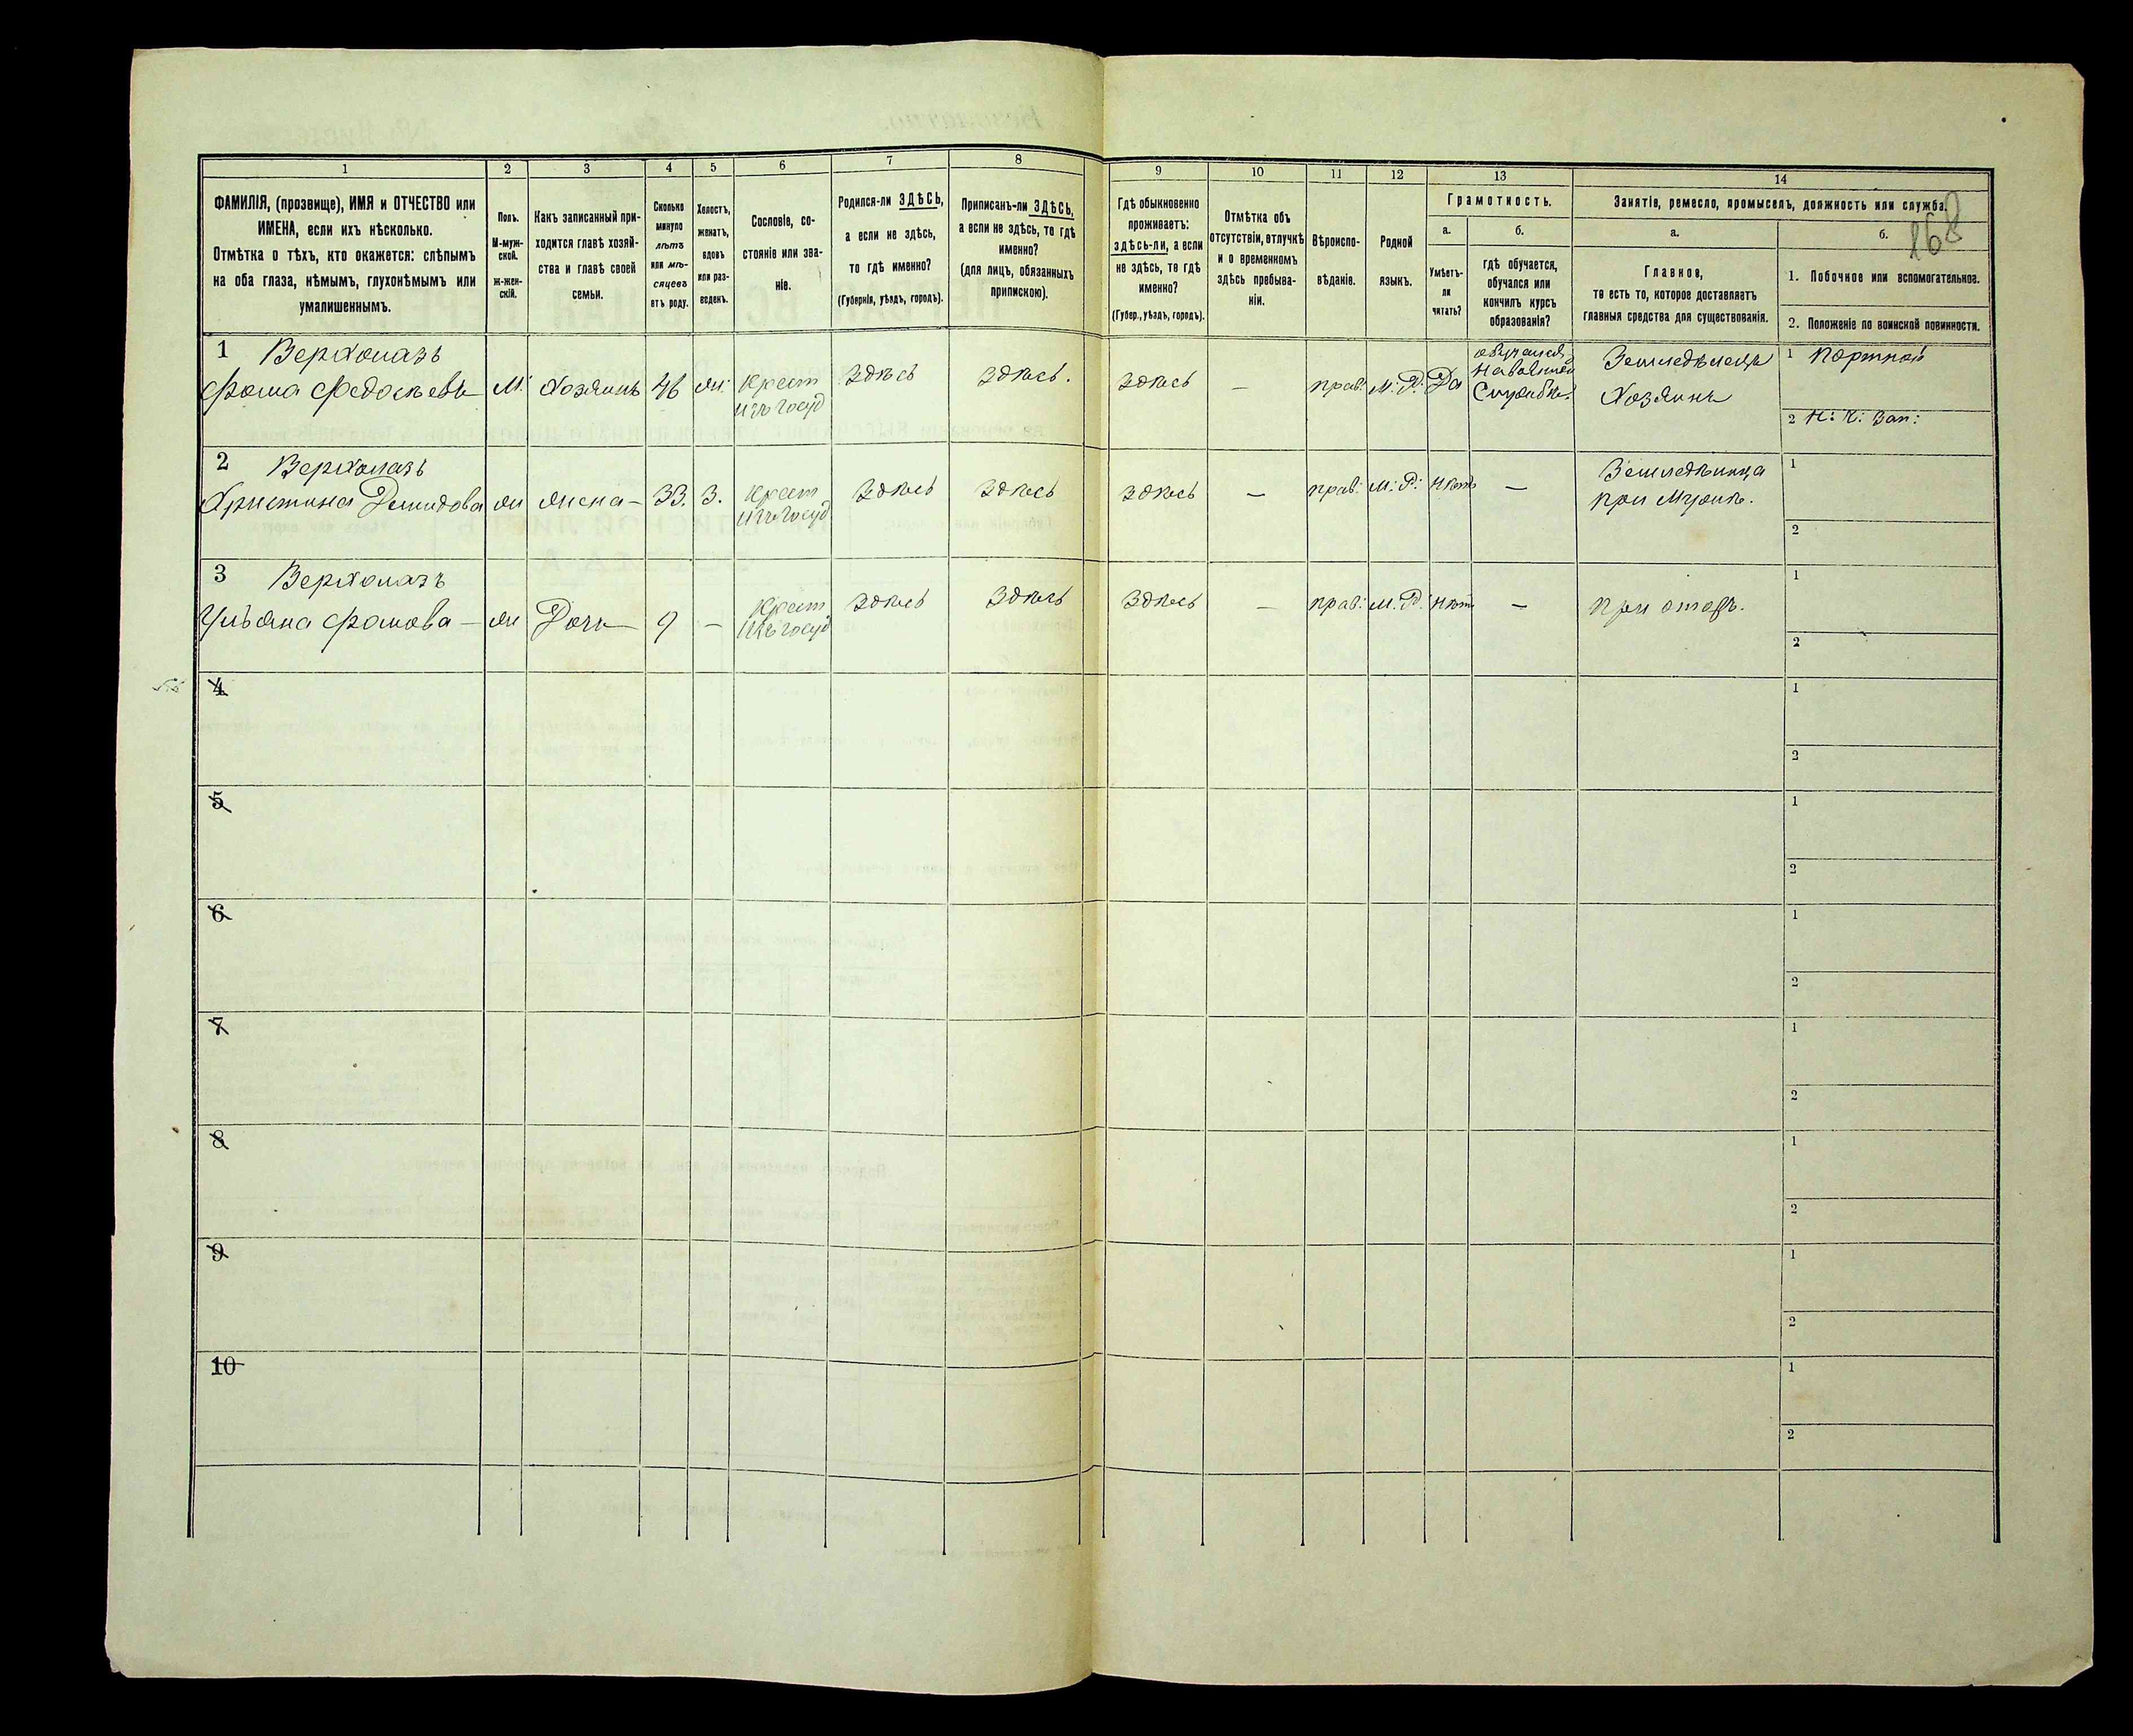 1 2 3 4 5 6 7 8 9 10 11 12 13 14
ФАМИЛІЯ, (прозвище), ИМЯ и ОТЧЕСТВО или
ИМЕНА, если ихъ нѣсколько.
Отмѣтка о тѣхъ, кто окажется: слѣпымъ
на оба глаза, нѣмымъ, глухонѣмымъ или
умалишеннымъ.
Полъ.
М-муж-
ской.
ж-жен-
скій.
Какъ записанный при-
ходится главѣ хозяй-
ства и главѣ своей
семьи.
Сколько
минуло
лѣтъ
или мѣ-
сяцевъ
отъ роду.
Холостъ,
женатъ,
вдовъ
или раз-
веденъ.
Сословіе, со-
стояніе или зва-
ніе.
Родился-ли ЗДѢСЬ,
а если не здѣсь,
то гдѣ именно?
(Губернія, уѣздъ, городъ).
Приписанъ-ли ЗДѢСЬ,
а если не здѣсь, то гдѣ
именно?
(для лицъ, обязанныхъ
припискою).
Гдѣ обыкновенно
проживаетъ:
здѣсь-ли, а если
не здѣсь, то гдѣ
именно?
(Губер., уѣздъ, городъ).
Отмѣтка объ
отсутствіи, отлучкѣ
и о временномъ
здѣсь пребыва-
ніи.
Вѣроиспо-
вѣданіе.
Родной
языкъ.
Грамотность.
а.
Умѣетъ-
ли
читать?
б.
гдѣ обучается,
обучался или
кончилъ курсъ
образованія?
Занятіе, ремесло, промыселъ, должность или служба.
168
а.
Главное,
то есть то, которое доставляетъ
главныя средства для существованія.
б.
1. Побочное или вспомогательное.
2. Положеніе по воинской повинности.
1 Верхолазъ
Фома Федосѣевъ М. Хозяинъ 46 Ж. Крест изъ госуд Здѣсь Здѣсь. Здѣсь — прав: М: Р: Да
обучался
Службѣ.
Земледѣлецъ
Хозяинъ
1 Портной
2 Н: Ч: Зап:
2 Верхолазъ
Христина Демидова Ж Жена — 33. З. Крест изъ госуд Здѣсь Здѣсь Здѣсь — прав: М: Р: Нѣтъ —
при Мужѣ.
1
2
3 Верхолазъ
Ульяна Фомова — Ж Дочь 9 — Крест изъ госуд Здѣсь Здѣсь Здѣсь — прав: М: Р: Нѣт —
При отцѣ.
1
2
4 1
2
5 1
2
6 1
2
7 1
2
8 1
2
9 1
2
10 1
2